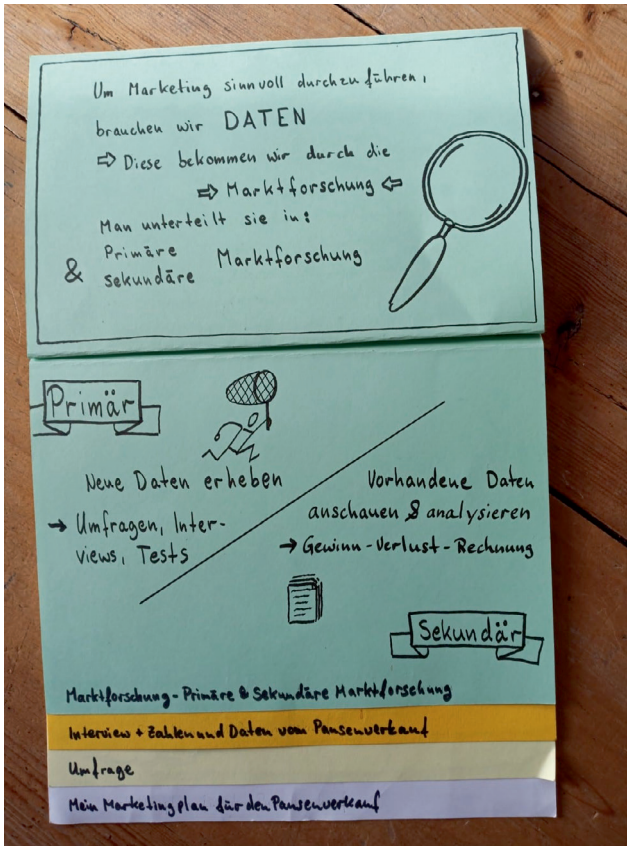 Um Marketing sinnvoll durchzuführen,
brauchen wir DATEN
⇨ Diese bekommen wir durch die
⇨ Marktforschung ⇦
Man unterteilt sie in:
Primäre
& sekundäre Marktforschung
Primär
Neue Daten erheben
→ Umfragen, Inter-
views, Tests
Vorhandene Daten
anschauen & analysieren
→ Gewinn-Verlust-Rechnung
Sekundär
Marktforschung - Primäre & Sekundäre Marktforschung
Interview + Zahlen und Daten vom Pausenverkauf
Umfrage
Mein Marketingplan für den Pausenverkauf